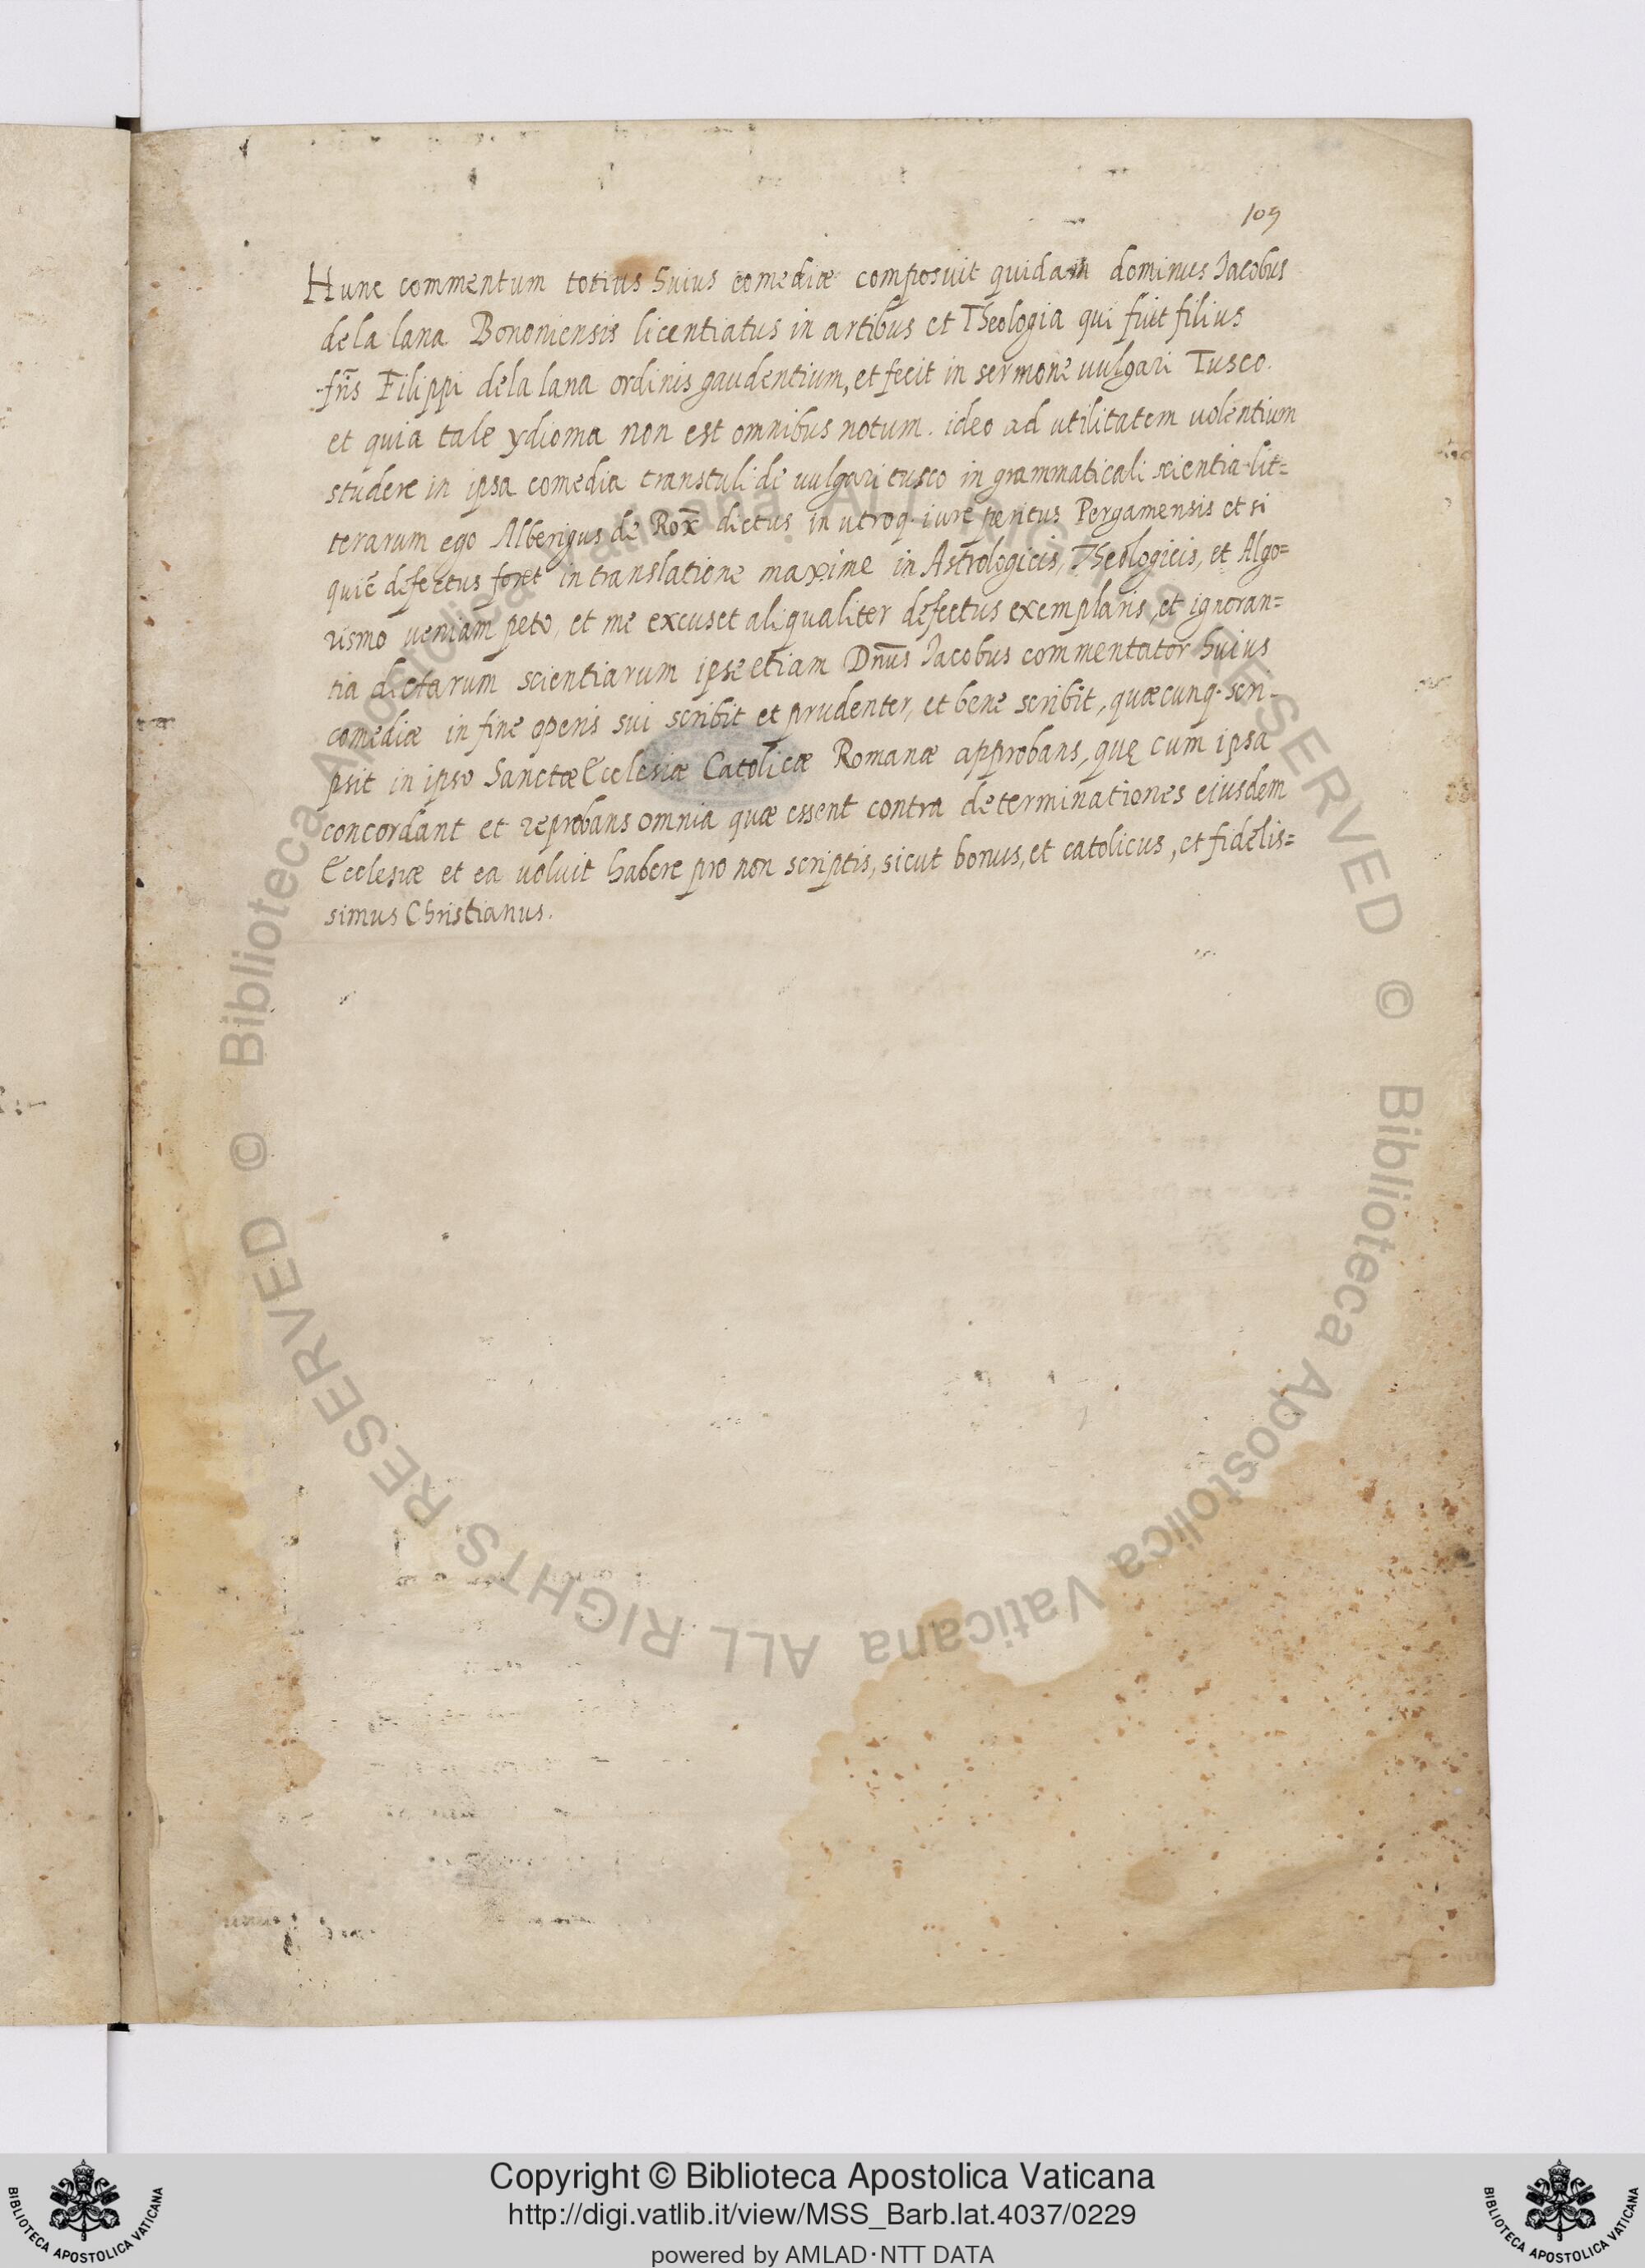 109
Hunc commentum totius huius comediæ composuit quidam dominus Jacobus
dela lana Bononiensis licentiatus in artibus et Theologia qui fuit filius
frīs Filippi dela lana ordinis gaudentium, et fecit in sermone uulgari Tusco.
et quia tale ydioma non est omnibus notum. ideo ad utilitatem uolentium
studere in ipsa comedia transtuli de uulgari tusco in grammaticali scientia lit=
terarum ego Alberigus de Rox̄ dictus in utroq. iure peritus Pergamensis et si
quis defectus foret in translatione maxime in Astrologicis, Theologicis, et Algo=
rismo ueniam peto, et me excuset aliqualiter defectus exemplaris, et ignoran=
tia dictarum scientiarum ipse etiam Dn̄us Jacobus commentator huius
comediæ in fine operis sui scribit et prudenter, et bene scribit, quæcunq. scri-
psit in ipso Sanctæ Ecclesiæ Catolicæ Romanæ approbans, quę cum ipsa
concordant et reprobans omnia quæ essent contra determinationes eiusdem
Ecclesiæ et ea uoluit habere pro non scriptis, sicut bonus, et catolicus, et fidelis=
simus Christianus.
© Biblioteca Apostolica Vaticana ALL RIGHTS RESERVED
© Biblioteca Apostolica Vaticana ALL RIGHTS RESERVED
BIBLIOTECA APOSTOLICA VATICANA
Copyright © Biblioteca Apostolica Vaticana
http://digi.vatlib.it/view/MSS_Barb.lat.4037/0229
powered by AMLAD·NTT DATA
BIBLIOTECA APOSTOLICA VATICANA